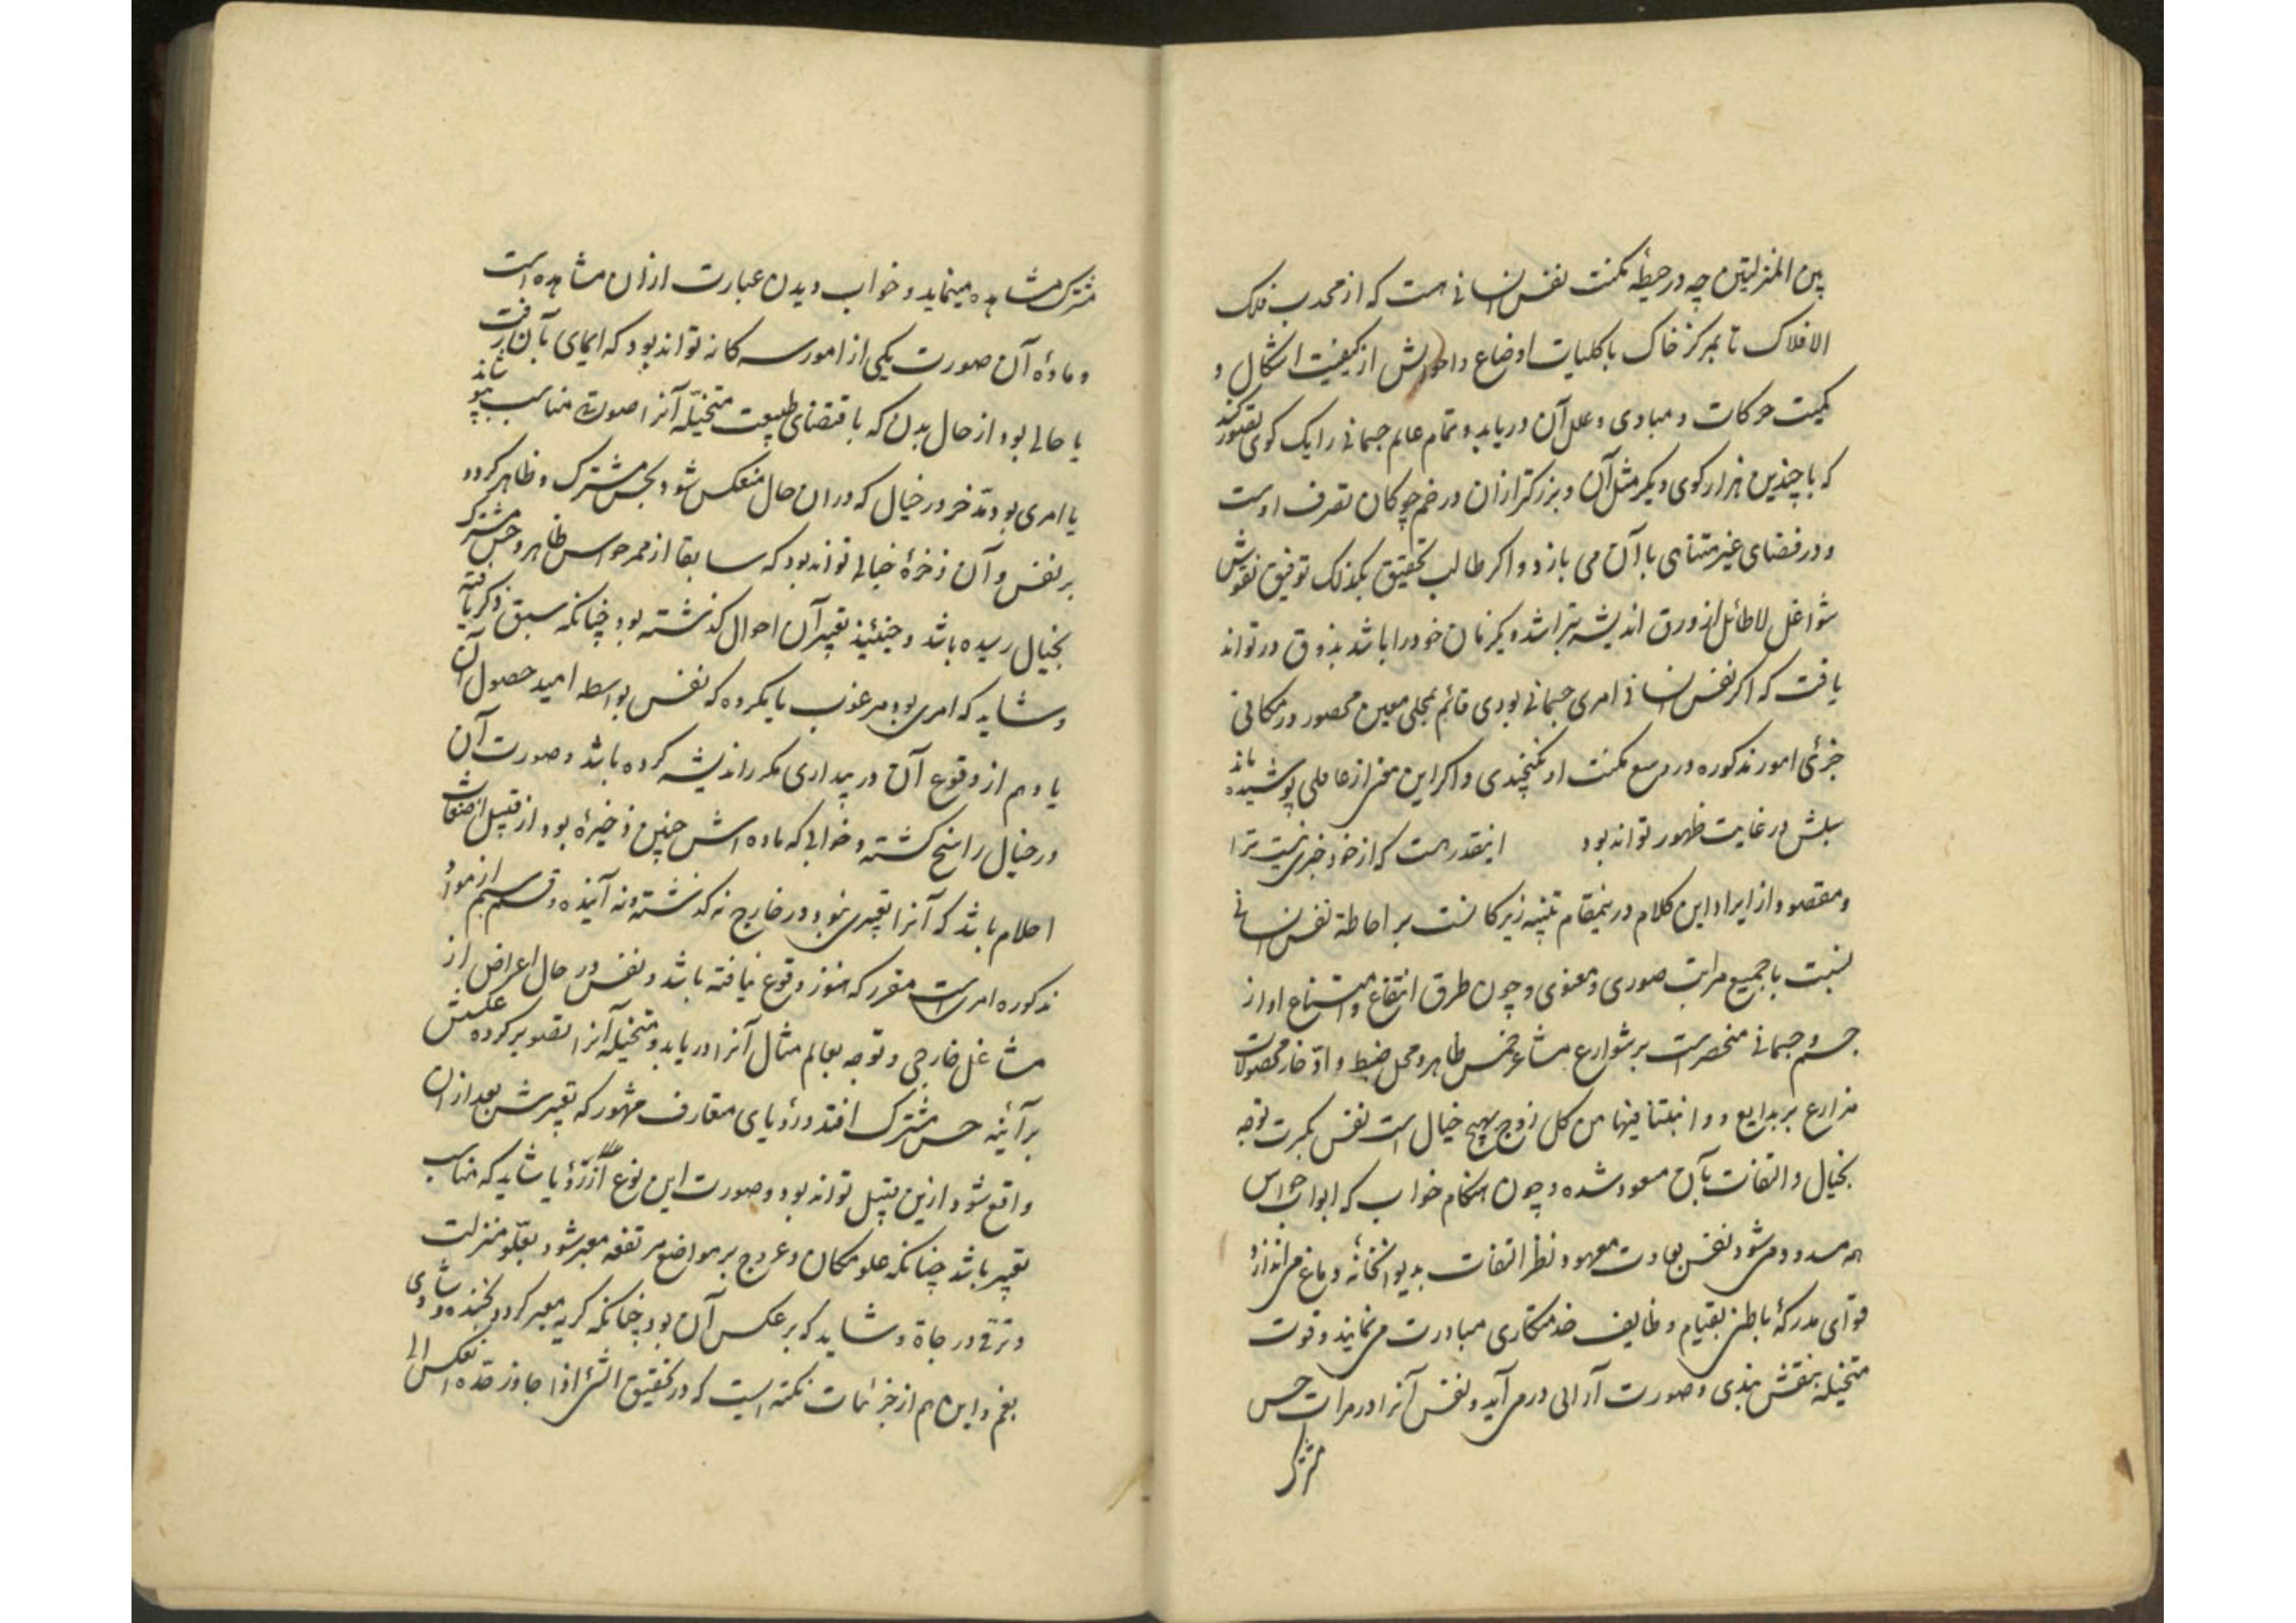 بین المنزلتین چه در حیطهٔ مکنت نفس انسانی هست که از محدب فلک
الافلاک تا بمرکز خاک با کلیات اوضاع و احوالش از کیفیت اشکال و
کمیت حرکات و مبادی و علل آن دریابد و تمام عالم جسمانی را یک کوی تصور کند
که با چندین هزار کوی دیگر مثل آن و بزرکتر از ان در خم چوکان تصرف اوست
و در فضای غیر متناهی با آن می بازد و اکر طالب تحقیق بکذلک توفیق نقوش
شواغل لاطائل از ورق اندیشه بتراشد و یکزمان خود را باشد بذوق در تواند
یافت که اکر نفس انسانی امری جسمانی بودی قائم بمحلی معین محصور در مکانی
جزئی امور مذکوره در وسع مکنت او نکنجیدی و اکر این معنی از عاملی پوشیده ماند
سلبش در غایت ظهور تواند بود اینقدر هست که از خود خبری نیست ترا
و مقصود از ایراد این کلام درینمقام تنبیه زیرکانست بر احاطهٔ نفس انسانی
نسبت با جمیع مراتب صوری و معنوی و چون طرق انتفاع و استمتاع او از
جسم و جسمانی منحصرست بر شوارع مشاعر خمس ظاهر و محل ضبط و ادخار محصولات
مزارع بر بدایع و انبتنا فیها من کل زوج بهیج خیال است نفس بکثرت توجه
بخیال و التفات بآن معود شده و چون هنکام خواب که ابواب حواس
همه مسدود می شود نفس بعادت معهود نظر التفات بدیوانخانهٔ دماغ می اندازد
قوای مدرکهٔ باطنی بقیام وظایف خدمتکاری مبادرت می نمایند و قوت
متخیله بنقش بندی و صورت آرائی در می آید و نفس آنرا در مرات حس
مشترک
مشترک مشاهده مینماید و خواب دیدن عبارت از ان مشاهده است
و مادهٔ آن صورت یکی از امور سه کانه تواند بود که ایمای بآن رفت
یا حالی بود از حال بدن که باقتضای طبیعت متخیله آنرا صورتی مناسب بپوشاند
یا امری بود مدخر در خیال که در ان حال منعکس شود بحس مشترک و ظاهر کردد
بر نفس و آن ذخرهٔ خیالی تواند بود که سابقا از ممر حواس ظاهر و حس مشترک
بخیال رسیده باشد و حینئذ تعبیر آن احوال کذشته بود چنانکه سبق ذکر یافته
و شاید که امری بود مرغوب یا مکروه که نفس بواسطه امید حصول آن
یا وهم از وقوع آن در بیداری مکرر اندیشه کرده باشد و صورت آن
در خیال راسخ کشته و خوابی که ماده اش چنین ذخیرهٔ بود از قبیل اضغاث
احلام باشد که آنرا تعبیری نبود در خارج نه کذشته و نه آینده و قسم سیم از مواد
مذکوره امریست مقرر که هنوز وقوع نیافته باشد و نفس در حال اعراض از
مشاغل خارجی و توجه بعالم مثال آنرا دریابد و متخیله آنرا تصویر کرده عکسش
بر آئینه حس مشترک افتد و رؤیای متعارف مشهور که تعبیرش بعد از ان
واقع شود ازین قبیل تواند بود و صورت این نوع از رؤیا شاید که مناسب
تعبیر باشد چنانکه علو مکان و عروج بر مواضع مرتفعه معبر شود بعلو منزلت
و ترقی درجاة و شاید که بر عکس آن بود چنانکه کریه معبر کردد بخنده و شادی
بغم و این هم از جزئیات نکته ایست که در تحقیق الشئ اذا جاوز حده انعکس الی